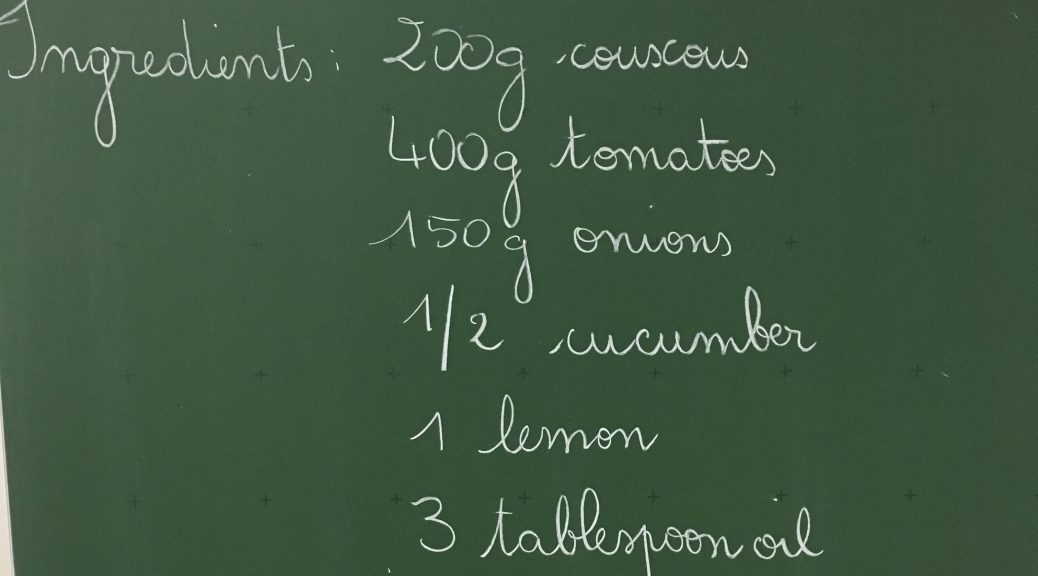 Ingredients: 200g couscous
400g tomatoes
150g onions
1/2 cucumber
1 lemon
3 tablespoon oil